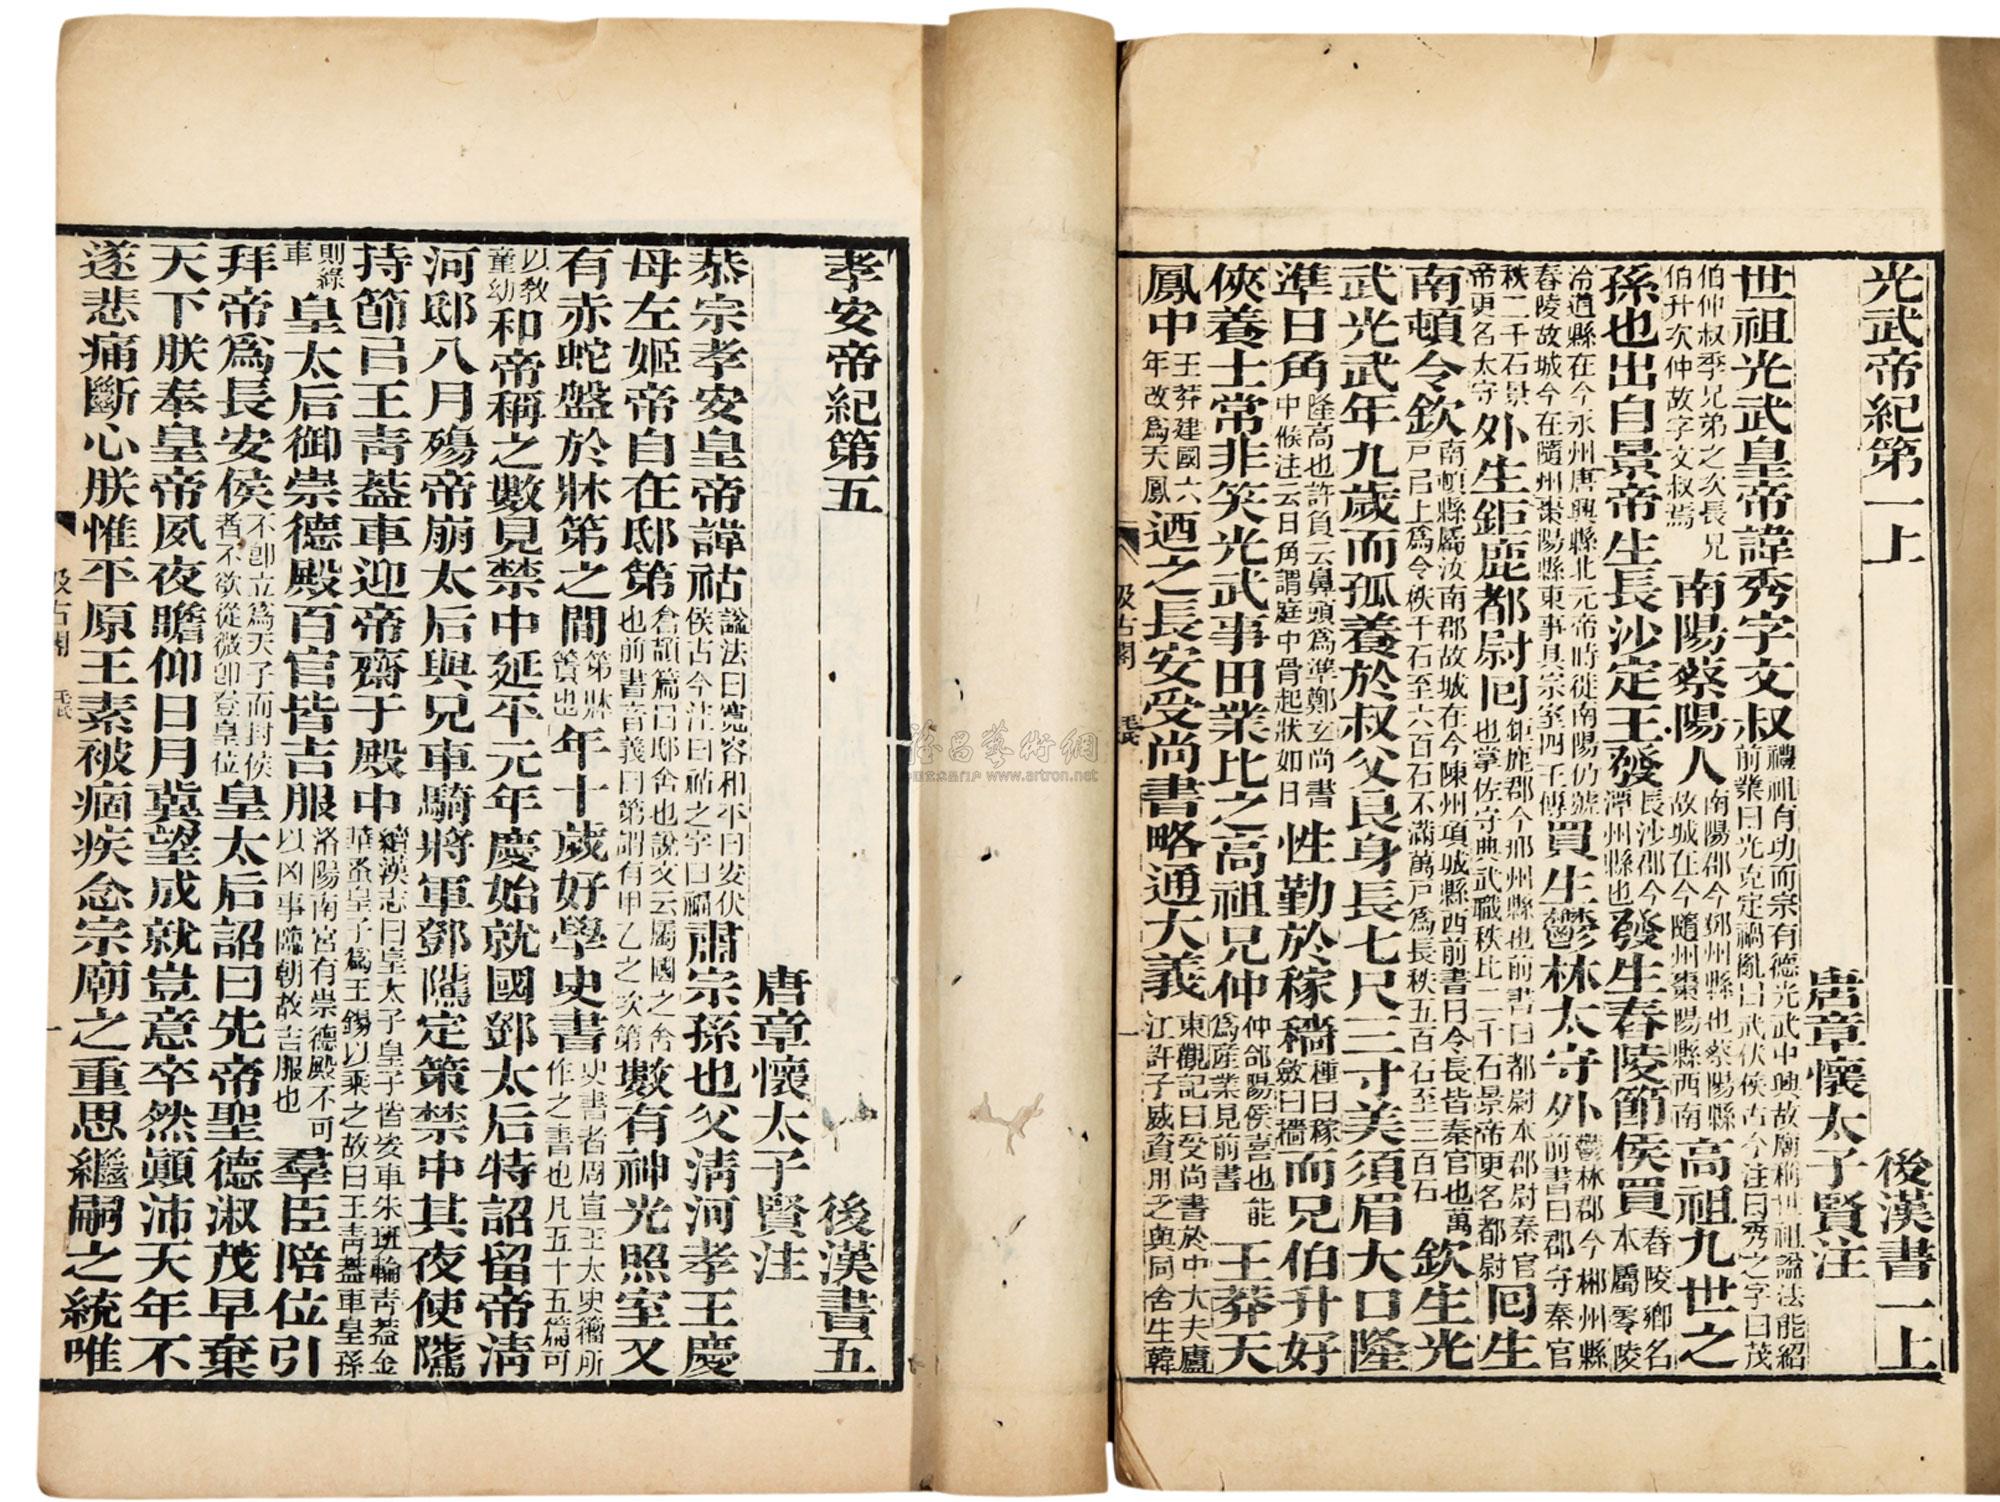 光武帝紀第一上 後漢書一上
唐章懷太子賢注
世祖光武皇帝諱秀字文叔禮祖有功而宗有德光武中興故廟稱世祖謚法能紹前業曰光克定禍亂曰武伏侯古今注曰秀之字曰茂
伯仲叔季兄弟之次長兄伯升次仲故字文叔焉南陽蔡陽人南陽郡今鄧州縣也蔡陽縣故城在今隨州棗陽縣西南高祖九世之
孫也出自景帝生長沙定王發長沙郡今潭州縣也發生舂陵節侯買舂陵鄉名本屬零陵
泠道縣在今永州唐興縣北元帝時徙南陽仍號舂陵故城今在隨州棗陽縣東事具宗室四王傳買生鬱林太守外鬱林郡今郴州縣前書曰郡守秦官
秩二千石景帝更名太守外生鉅鹿都尉囘鉅鹿郡今邢州縣也前書曰都尉本郡尉秦官也掌佐守典武職秩比二千石景帝更名都尉囘生
南頓令欽南頓縣屬汝南郡故城在今陳州項城縣西前書曰令長皆秦官也萬戸已上爲令秩千石至六百石不滿萬戸爲長秩五百石至三百石欽生光
武光武年九歲而孤養於叔父良身長七尺三寸美須眉大口隆
準日角隆高也許負云鼻頭爲準鄭玄尚書中候注云日角謂庭中骨起狀如日性勤於稼穡種曰稼斂曰穡而兄伯升好
俠養士常非笑光武事田業比之高祖兄仲仲郃陽侯喜也能爲産業見前書王莽天
鳳中王莽建國六年改爲天鳳迺之長安受尚書略通大義東觀記曰受尚書於中大夫廬江許子威資用乏與同舍生韓
汲古閣 毛氏 一
孝安帝紀第五 後漢書五
唐章懷太子賢注
恭宗孝安皇帝諱祜謚法曰寬容和平曰安伏侯古今注曰祜之字曰福肅宗孫也父清河孝王慶
母左姬帝自在邸第倉頡篇曰邸舍也說文云屬國之舍也前書音義曰第謂有甲乙之次第數有神光照室又
有赤蛇盤於牀第之間第牀簀也年十歲好學史書史書者周宣王太史籀所作之書也凡五十五篇可
以敎童幼和帝稱之數見禁中延平元年慶始就國鄧太后特詔留帝淸
河邸八月殤帝崩太后與兄車騎將軍鄧隲定策禁中其夜使隲
持節㠯王靑葢車迎帝齋于殿中續漢志曰皇太子皇子皆安車朱班輪靑葢金華蚤皇子爲王錫以乘之故曰王靑葢車皇孫
則綠車皇太后御崇德殿百官皆吉服洛陽南宮有崇德殿不可以凶事臨朝故吉服也羣臣陪位引
拜帝爲長安侯不卽立爲天子而封侯者不欲從微卽登皇位皇太后詔曰先帝聖德淑茂早棄
天下朕奉皇帝夙夜瞻仰日月冀望成就豈意卒然顚沛天年不
遂悲痛斷心朕惟平原王素被痼疾念宗廟之重思繼嗣之統唯
汲古閣 毛氏 一
www.artron.net